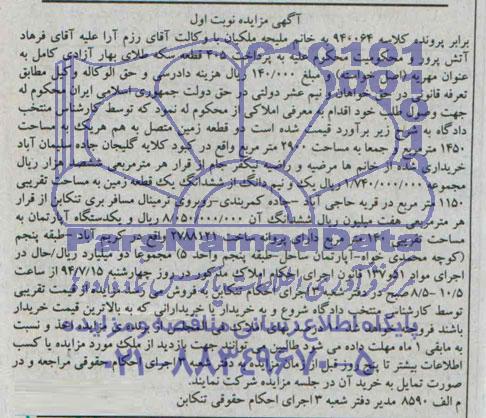 آگهی مزایده نوبت اول
برابر پرونده کلاسه ۹۴۰۰۶۴ به خانم ملیحه ملکیان با وکالت آقای رزم آرا علیه آقای فرهاد
آتش پرور و محکومیت محکوم علیه به پرداخت ۲۰۵ قطعه سکه طلای بهار آزادی کامل به
عنوان مهریه (اصل خواسته) و مبلغ ۱۴۰/۰۰۰ ریال هزینه دادرسی و حق الوکاله وکیل مطابق
تعرفه قانونی در حق خواهان و نیم عشر دولتی در حق دولت جمهوری اسلامی ایران محکوم له
جهت وصول طلب خود اقدام به معرفی املاکی از محکوم له نمود که توسط کارشناس منتخب
دادگاه به شرح زیر برآورد قیمت شده است دو قطعه زمین متصل به هم هریک به مساحت
۱۴۵۰ متر مربع جمعا به مساحت ۲۹۰۰ متر مربع واقع در کبود کلایه گلیجان جاده سلیمان آباد
خریداری شده از خانم ها مرضیه و راضیه تفکر خام از قرار هر مترمربعی ششصد هزار ریال
مجموعا ۱/۷۴۰/۰۰۰/۰۰۰ ریال یک و نیم دانگ از ششدانگ یک قطعه زمین به مساحت تقریبی
۱۱۵۰ متر مربع در قریه حاجی آباد -جاده کمربندی-روبروی ترمینال مسافر بری تنکابن از قرار
هر مترمربعی هفت میلیون ریال ششدانگ آن ۸/۰۵۰/۰۰۰/۰۰۰ ریال و یکدستگاه آپارتمان به
مساحت تقریبی ۱۲۰ متر مربع دارای پروانه ساخت ۲۷۸۸۱۲۱ واقع در کریم آباد -طبقه پنجم
(کوچه محمدی خواه-آپارتمان ساحل-طبقه پنجم واحد ۵) مجموعا دو میلیارد ریال/حال در
اجرای مواد ۵۱ و ۱۳۷ قانون اجرای احکام املاک مذکور در روز چهارشنبه ۹۴/۷/۱۵ از ساعت
۱۰/۵-۸/۵ صبح در دفتر شعبه ۳ اجرای احکام تنکابن به فروش می رسد مزایده از قیمت تقریبی
توسط کارشناس منتخب دادگاه شروع و به خریدار یا خریدارانی که به بالاترین قیمت خریدار
باشند فروخته
به مابقی ۱ ماه مهلت داده می شود طالبین می توانند جهت بازدید از ملک مورد مزایده یا کسب
اطلاعات بیشتر تا پنج روز قبل از زمان مزایده به دفتر شعبه ۳ اجرای احکام حقوقی مراجعه و در
صورت تمایل به خرید آن در جلسه مزایده شرکت نمایند.
م الف ۸۵۹۰ مدیر دفتر شعبه ۳ اجرای احکام حقوقی تنکابن
ParsNamadData
پایگاه اطلاع رسانی مناقصه و مزایده
۰۲۱-۸۸۳۴۹۶۷۰-۵